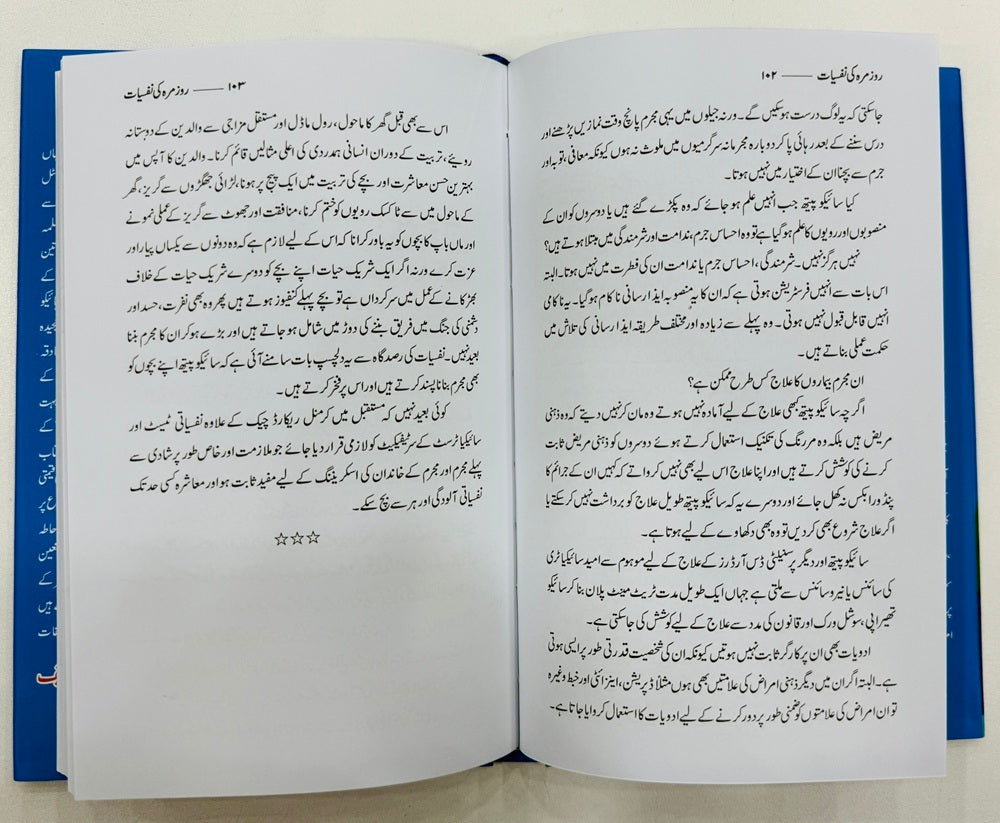 روزمرہ کی نفسیات —— ۱۰۲
جاسکتی کہ یہ لوگ درست ہوسکیں گے۔ ورنہ جیلوں میں یہی مجرم پانچ وقت نمازیں پڑھنے اور
درس سننے کے بعد رہائی پا کر دوبارہ مجرمانہ سرگرمیوں میں ملوث نہ ہوں کیونکہ معافی، توبہ اور
جرم سے بچنا ان کے اختیار میں نہیں ہوتا۔
کیا سائیکو پیتھ جب انہیں علم ہو جائے کہ وہ پکڑے گئے ہیں یا دوسروں کو ان کے
منصوبوں اور رویوں کا علم ہو گیا ہے تو وہ احساس جرم، ندامت اور شرمندگی میں مبتلا ہوتے ہیں؟
نہیں ہرگز نہیں۔ شرمندگی، احساس جرم یا ندامت ان کی فطرت میں نہیں ہوتا۔ البتہ
اس بات سے انہیں فرسٹریشن ہوتی ہے کہ ان کا یہ منصوبہ ایذا رسانی ناکام ہوگیا۔ یہ ناکامی
انہیں قابل قبول نہیں ہوتی۔ وہ پہلے سے زیادہ اور مختلف طریقہ ایذا رسانی کی تلاش میں
حکمت عملی بناتے ہیں۔
ان مجرم بیماروں کا علاج کس طرح ممکن ہے؟
اگرچہ سائیکو پیتھ کبھی علاج کے لیے آمادہ نہیں ہوتے وہ مان کر نہیں دیتے کہ وہ ذہنی
مریض ہیں بلکہ وہ مررنگ کی تکنیک استعمال کرتے ہوئے دوسروں کو ذہنی مریض ثابت
کرنے کی کوشش کرتے ہیں اور اپنا علاج اس لیے بھی نہیں کرواتے کہ کہیں ان کے جرائم کا
پنڈورا بکس نہ کھل جائے اور دوسرے یہ کہ سائیکو پیتھ طویل علاج کو برداشت نہیں کرسکتے یا
اگر علاج شروع بھی کر دیں تو وہ بھی دکھاوے کے لیے ہوتا ہے۔
سائیکو پیتھ اور دیگر پرسنیلٹی ڈس آرڈرز کے علاج کے لیے موہوم سے امید سائیکیاٹری
کی سائنس یا نیرو سائنس سے ملتی ہے جہاں ایک طویل مدت ٹریٹ مینٹ پلان بنا کر سائیکو
تھیراپی، سوشل ورک اور قانون کی مدد سے علاج کے لیے کوشش کی جاسکتی ہے۔
ادویات بھی ان پر کارگر ثابت نہیں ہوتیں کیونکہ ان کی شخصیت قدرتی طور پر ایسی ہوتی
ہے۔ البتہ اگر ان میں دیگر ذہنی امراض کی علامتیں بھی ہوں مثلاً ڈپریشن، اینزائٹی اور خبط وغیرہ
تو ان امراض کی علامتوں کو ضمنی طور پر دور کرنے کے لیے ادویات کا استعمال کروایا جاتا ہے۔
۱۰۳ —— روزمرہ کی نفسیات
اس سے بھی قبل گھر کا ماحول، رول ماڈل اور مستقل مزاجی سے والدین کے دوستانہ
رویئے، تربیت کے دوران انسانی ہمدردی کی اعلی مثالیں قائم کرنا۔ والدین کا آپس میں
بہترین حسن معاشرت اور بچے کی تربیت میں ایک پیج پر ہونا، لڑائی جھگڑوں سے گریز، گھر
کے ماحول میں سے ٹاکسک رویوں کو ختم کرنا، منافقت اور جھوٹ سے گریز کے عملی نمونے
اور ماں باپ کا بچوں کو یہ باور کرانا کہ اس کے لیے لازم ہے کہ وہ دونوں سے یکساں پیار اور
عزت کرے ورنہ اگر ایک شریک حیات اپنے بچے کو دوسرے شریک حیات کے خلاف
بھڑکانے کے عمل میں سرگرداں ہے تو بچے پہلے کنفیوز ہوتے ہیں پھر وہ بھی نفرت، حسد اور
دشمنی کی جنگ میں فریق بننے کی دوڑ میں شامل ہو جاتے ہیں اور بڑے ہو کر ان کا مجرم بننا
بعید نہیں۔ نفسیات کی رصدگاہ سے یہ دلچسپ بات سامنے آئی ہے کہ سائیکو پیتھ اپنے بچوں کو
بھی مجرم بنانا پسند کرتے ہیں اور اس پر فخر کرتے ہیں۔
کوئی بعید نہیں کہ مستقبل میں کرمنل ریکارڈ چیک کے علاوہ نفسیاتی ٹمیسٹ اور
سائیکیاٹرسٹ کے سرٹیفیکیٹ کو لازمی قرار دیا جائے جو ملازمت اور خاص طور پر شادی سے
پہلے مجرم اور مجرم کے خاندان کی اسکریننگ کے لیے مفید ثابت ہو اور معاشرہ کسی حد تک
نفسیاتی آلودگی اور ہر سے بچ سکے۔
☆☆☆